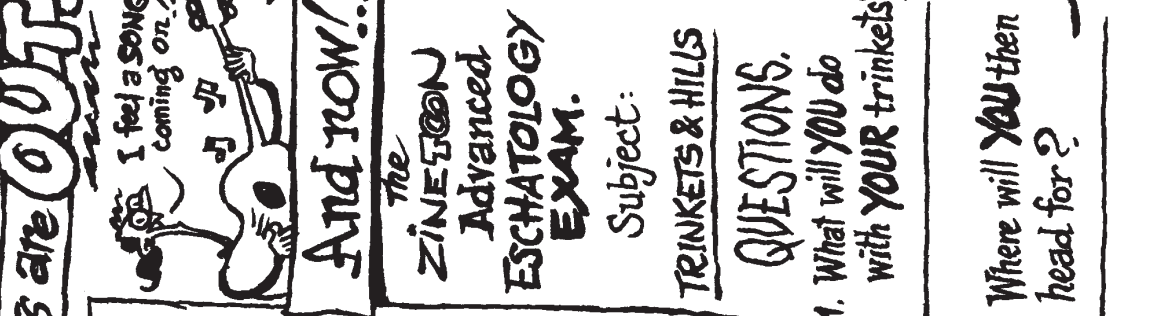 s are OUT
I feel a SONG
coming on..
And now!..
the
ZiNETOON
Advanced
ESCHATOLOGY
EXAM.
Subject:
TRINKETS & HILLS
QUESTIONS.
1. What will YOU do
with YOUR trinkets
Where will YOU then
head for?